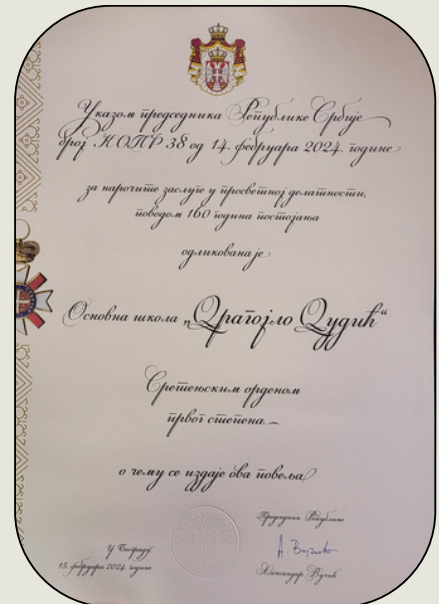 Указом председника Републике Србије
број КОПР 38 од 14. фебруара 2024. године
за нарочите заслуге у просветној делатности,
поводом 160 година постојања
одликована је
Основна школа „Драгојло Дудић“
Сретењским орденом
првог степена
о чему се издаје ова повеља
У Београду
15. фебруара 2024. године
Председник Републике
А. Вучић
Александар Вучић